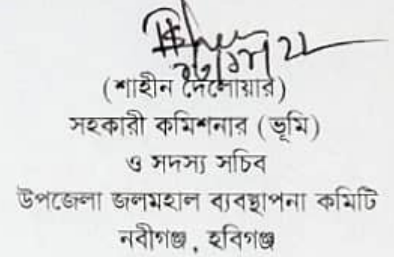 (শাহীন দেলোয়ার)
সহকারী কমিশনার (ভূমি)
ও সদস্য সচিব
উপজেলা জলমহাল ব্যবস্থাপনা কমিটি
নবীগঞ্জ, হবিগঞ্জ